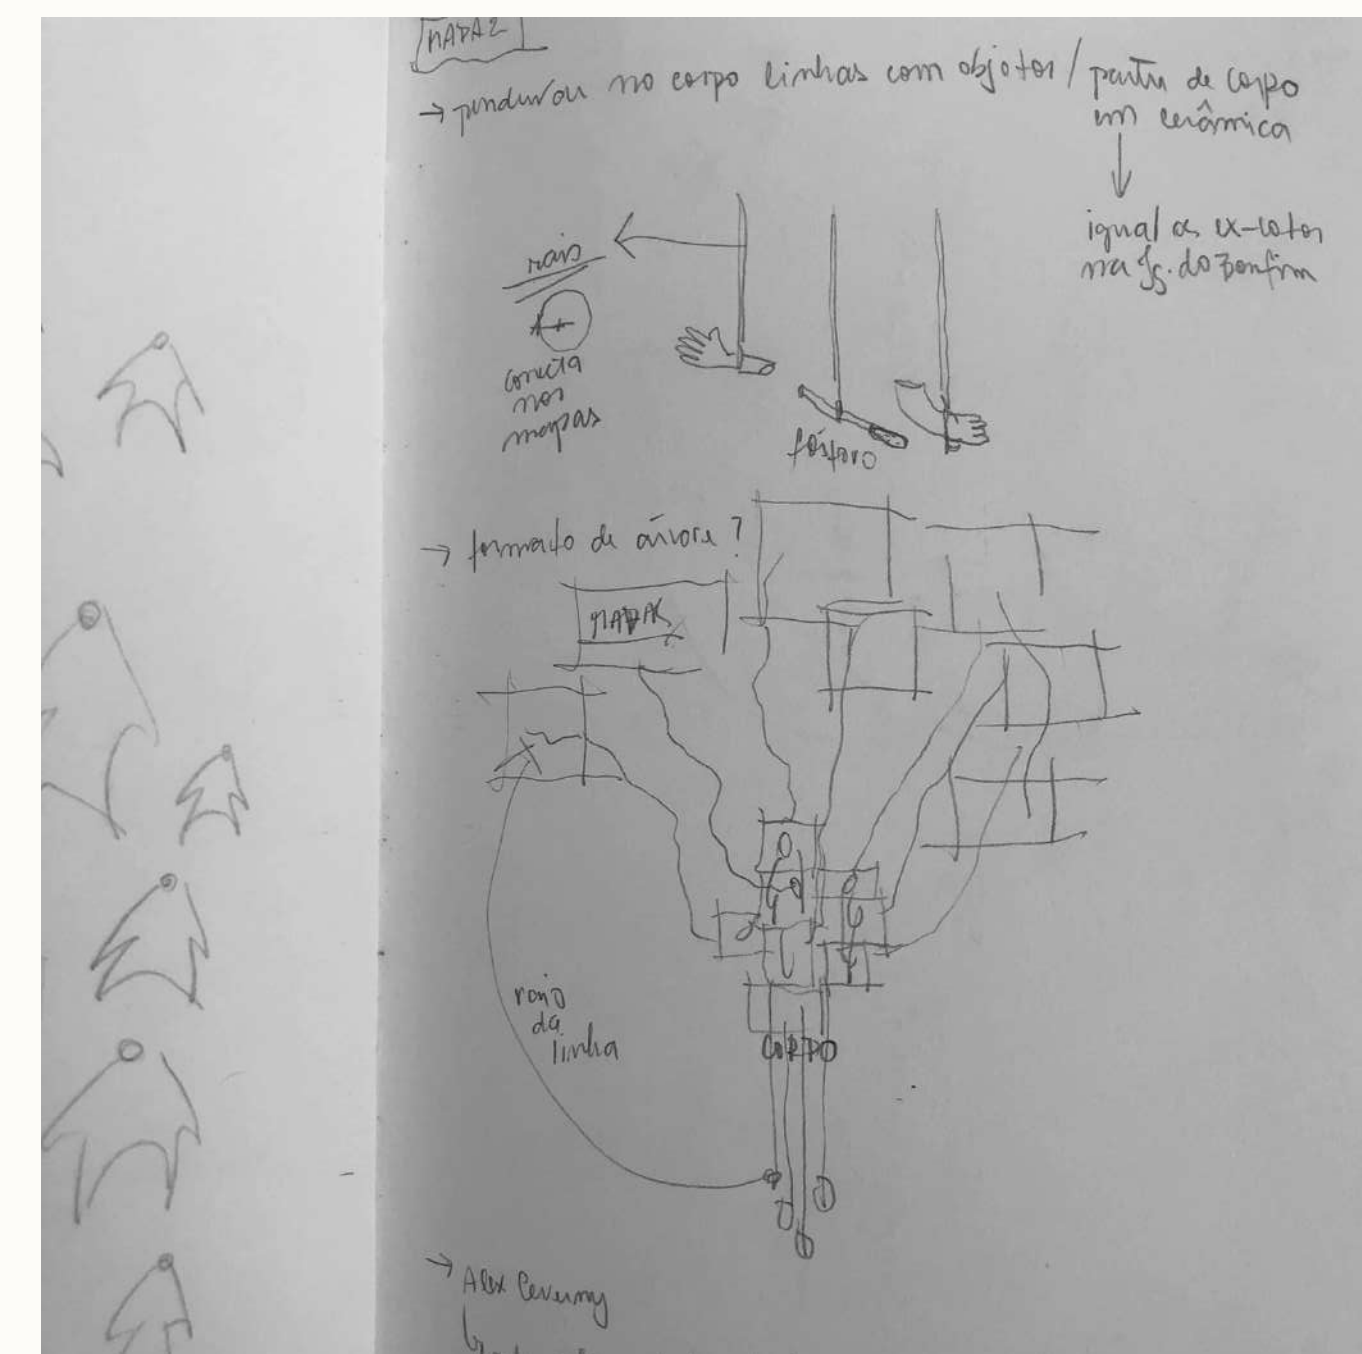 MAPAZ
→ pendurou no corpo linhas com objetos / partes de corpo
em cerâmica
igual os ex-votos
na Ig. do Bonfim
mais
A+
conecta
nos
mapas
fósforo
→ formato de árvore?
MAPAS
raio
da
linha
CORPO
→ Alex Cerveny